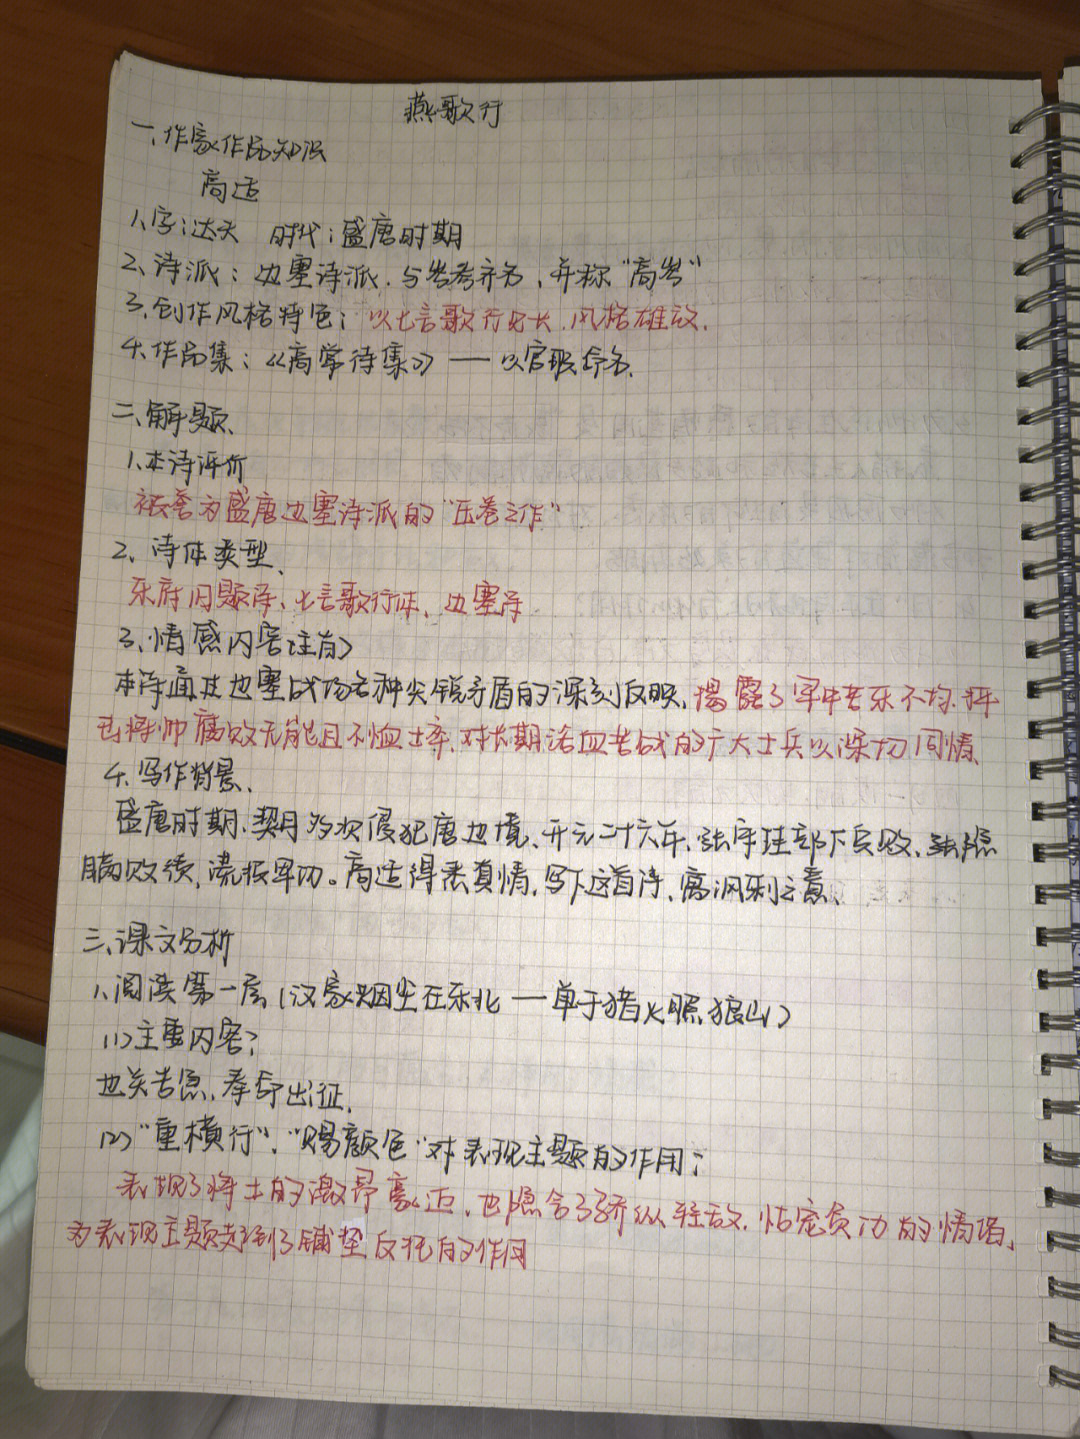 燕歌行
一、作家作品知识
高适
1、字:达夫 时代:盛唐时期
2、诗派:边塞诗派.与岑参齐名,并称"高岑"
3、创作风格特色:以七言歌行见长.风格雄放.
4、作品集:《高常侍集》——以官职命名.
二、解题、
1、本诗评价
被誉为盛唐边塞诗派的"压卷之作"
2、诗体类型、
乐府旧题诗、七言歌行体、边塞诗
3、情感内容(主旨)
本诗通过边塞战场各种尖锐矛盾的深刻反映,揭露了军中苦乐不均.抨
击将帅腐败无能且不恤士卒.对长期浴血苦战的广大士兵以深切同情.
4、写作背景、
盛唐时期、契丹多次侵犯唐边境、开元二十六年、张守珪部下兵败、张隐
瞒败绩,谎报军功。高适得悉真情,写下这首诗、寓讽刺之意、
三、课文分析
1、阅读第一层(汉家烟尘在东北——单于猎火照狼山)
(1)主要内容:
边关告急、奉命出征.
(2)"重横行"、"赐颜色"对表现主题的作用:
表现了将士的激昂豪迈、也隐含了骄纵轻敌.恃宠负功的情绪、
为表现主题起到了铺垫反托的作用